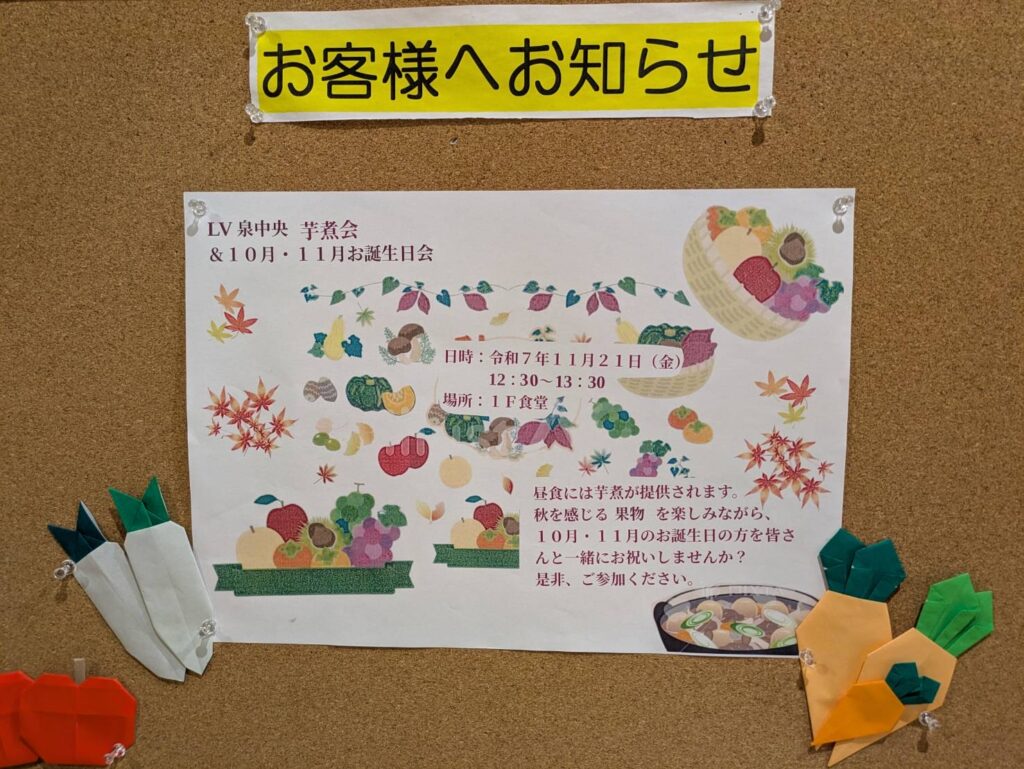 お客様へお知らせ
LV 泉中央 芋煮会
＆１０月・１１月お誕生日会
日時：令和７年１１月２１日（金）
12：30～13：30
場所：１Ｆ食堂
昼食には芋煮が提供されます。
秋を感じる 果物 を楽しみながら、
１０月・１１月のお誕生日の方を皆さ
んと一緒にお祝いしませんか？
是非、ご参加ください。